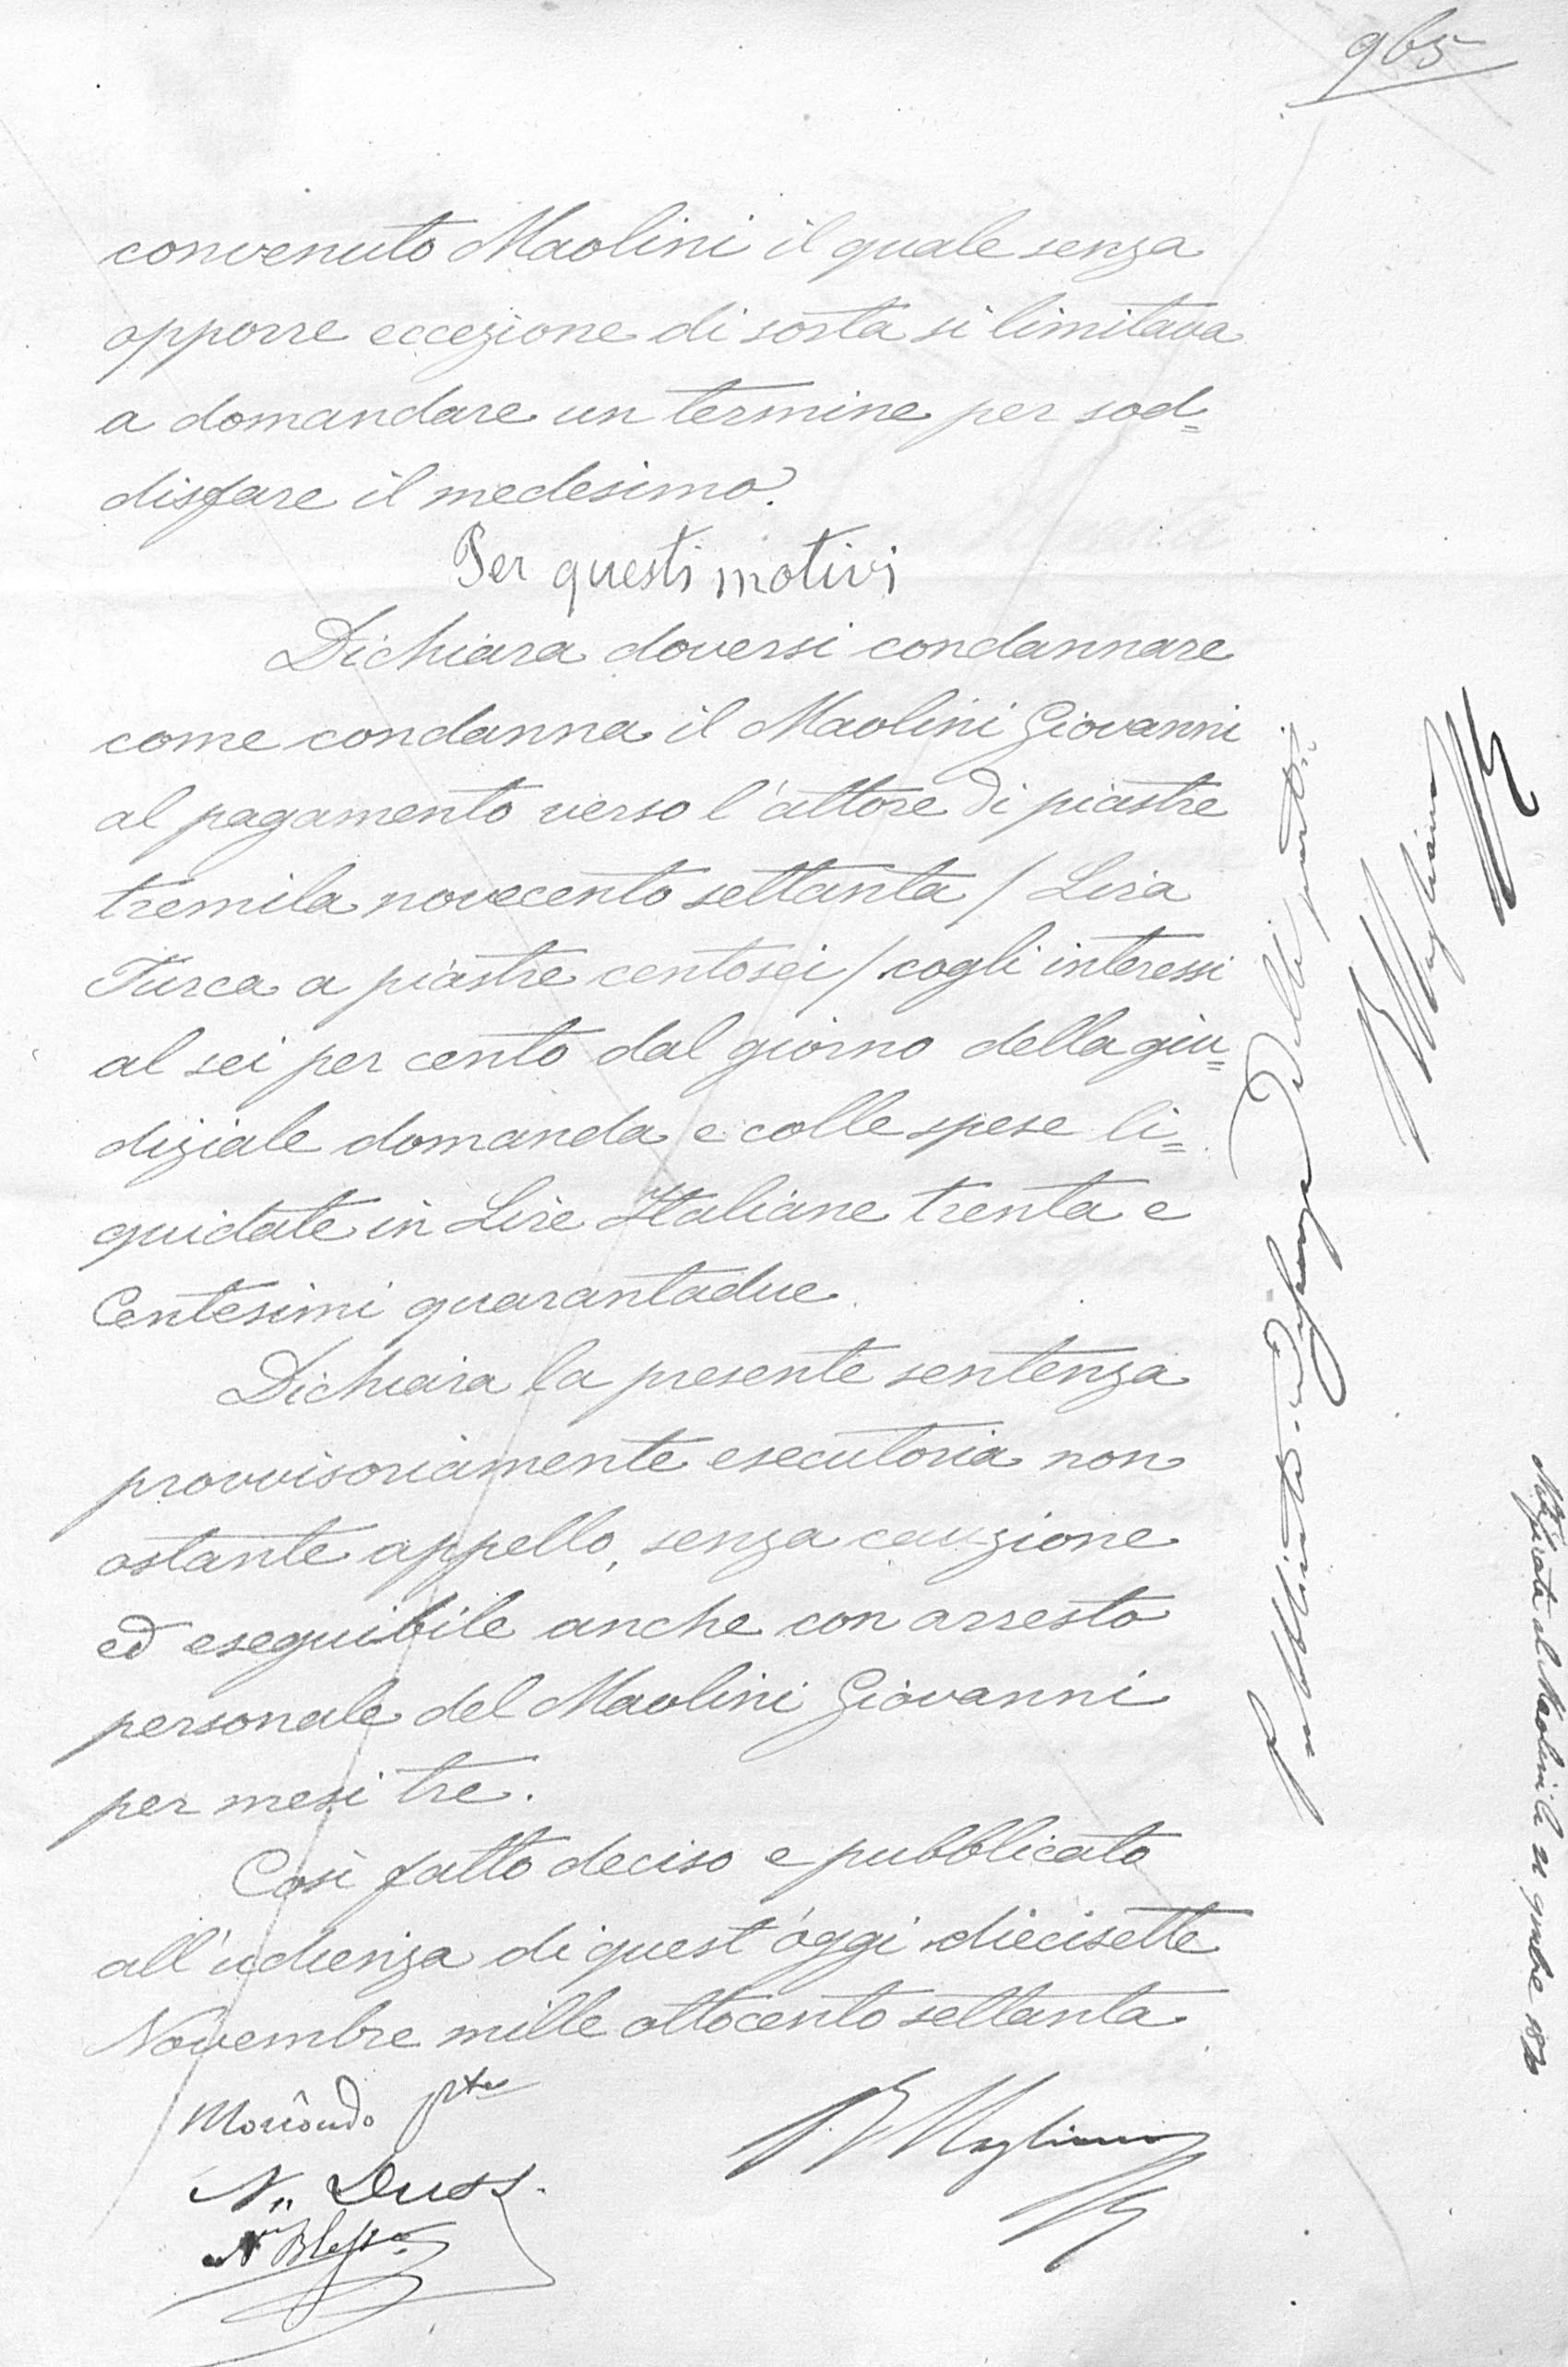 965
convenuto Maolini il quale senza
opporre eccezione di sorta si limitava
a domandare un termine per sod=
disfare il medesimo.
Per questi motivi
Dichiara doversi condannare
come condanna il Maolini Giovanni
al pagamento verso l'attore di piastre
tremila novecento settanta / Lira
Turca a piastre centosei / cogli interessi
al sei per cento dal giorno della giu=
diziale domanda e colle spese li=
quidate in Lire Italiane trenta e
Centesimi quarantadue.
Dichiara la presente sentenza
provvisoriamente esecutoria non
ostante appello, senza cauzione
ed eseguibile anche con arresto
personale del Maolini Giovanni
per mesi tre.
Così fatto deciso e pubblicato
all'udienza di quest'oggi diecisette
Novembre mille ottocento settanta
Moriondo
N. Duss
Magliano
delle parti
Magliano
Notificata al Maolini li 21 9mbre 1870